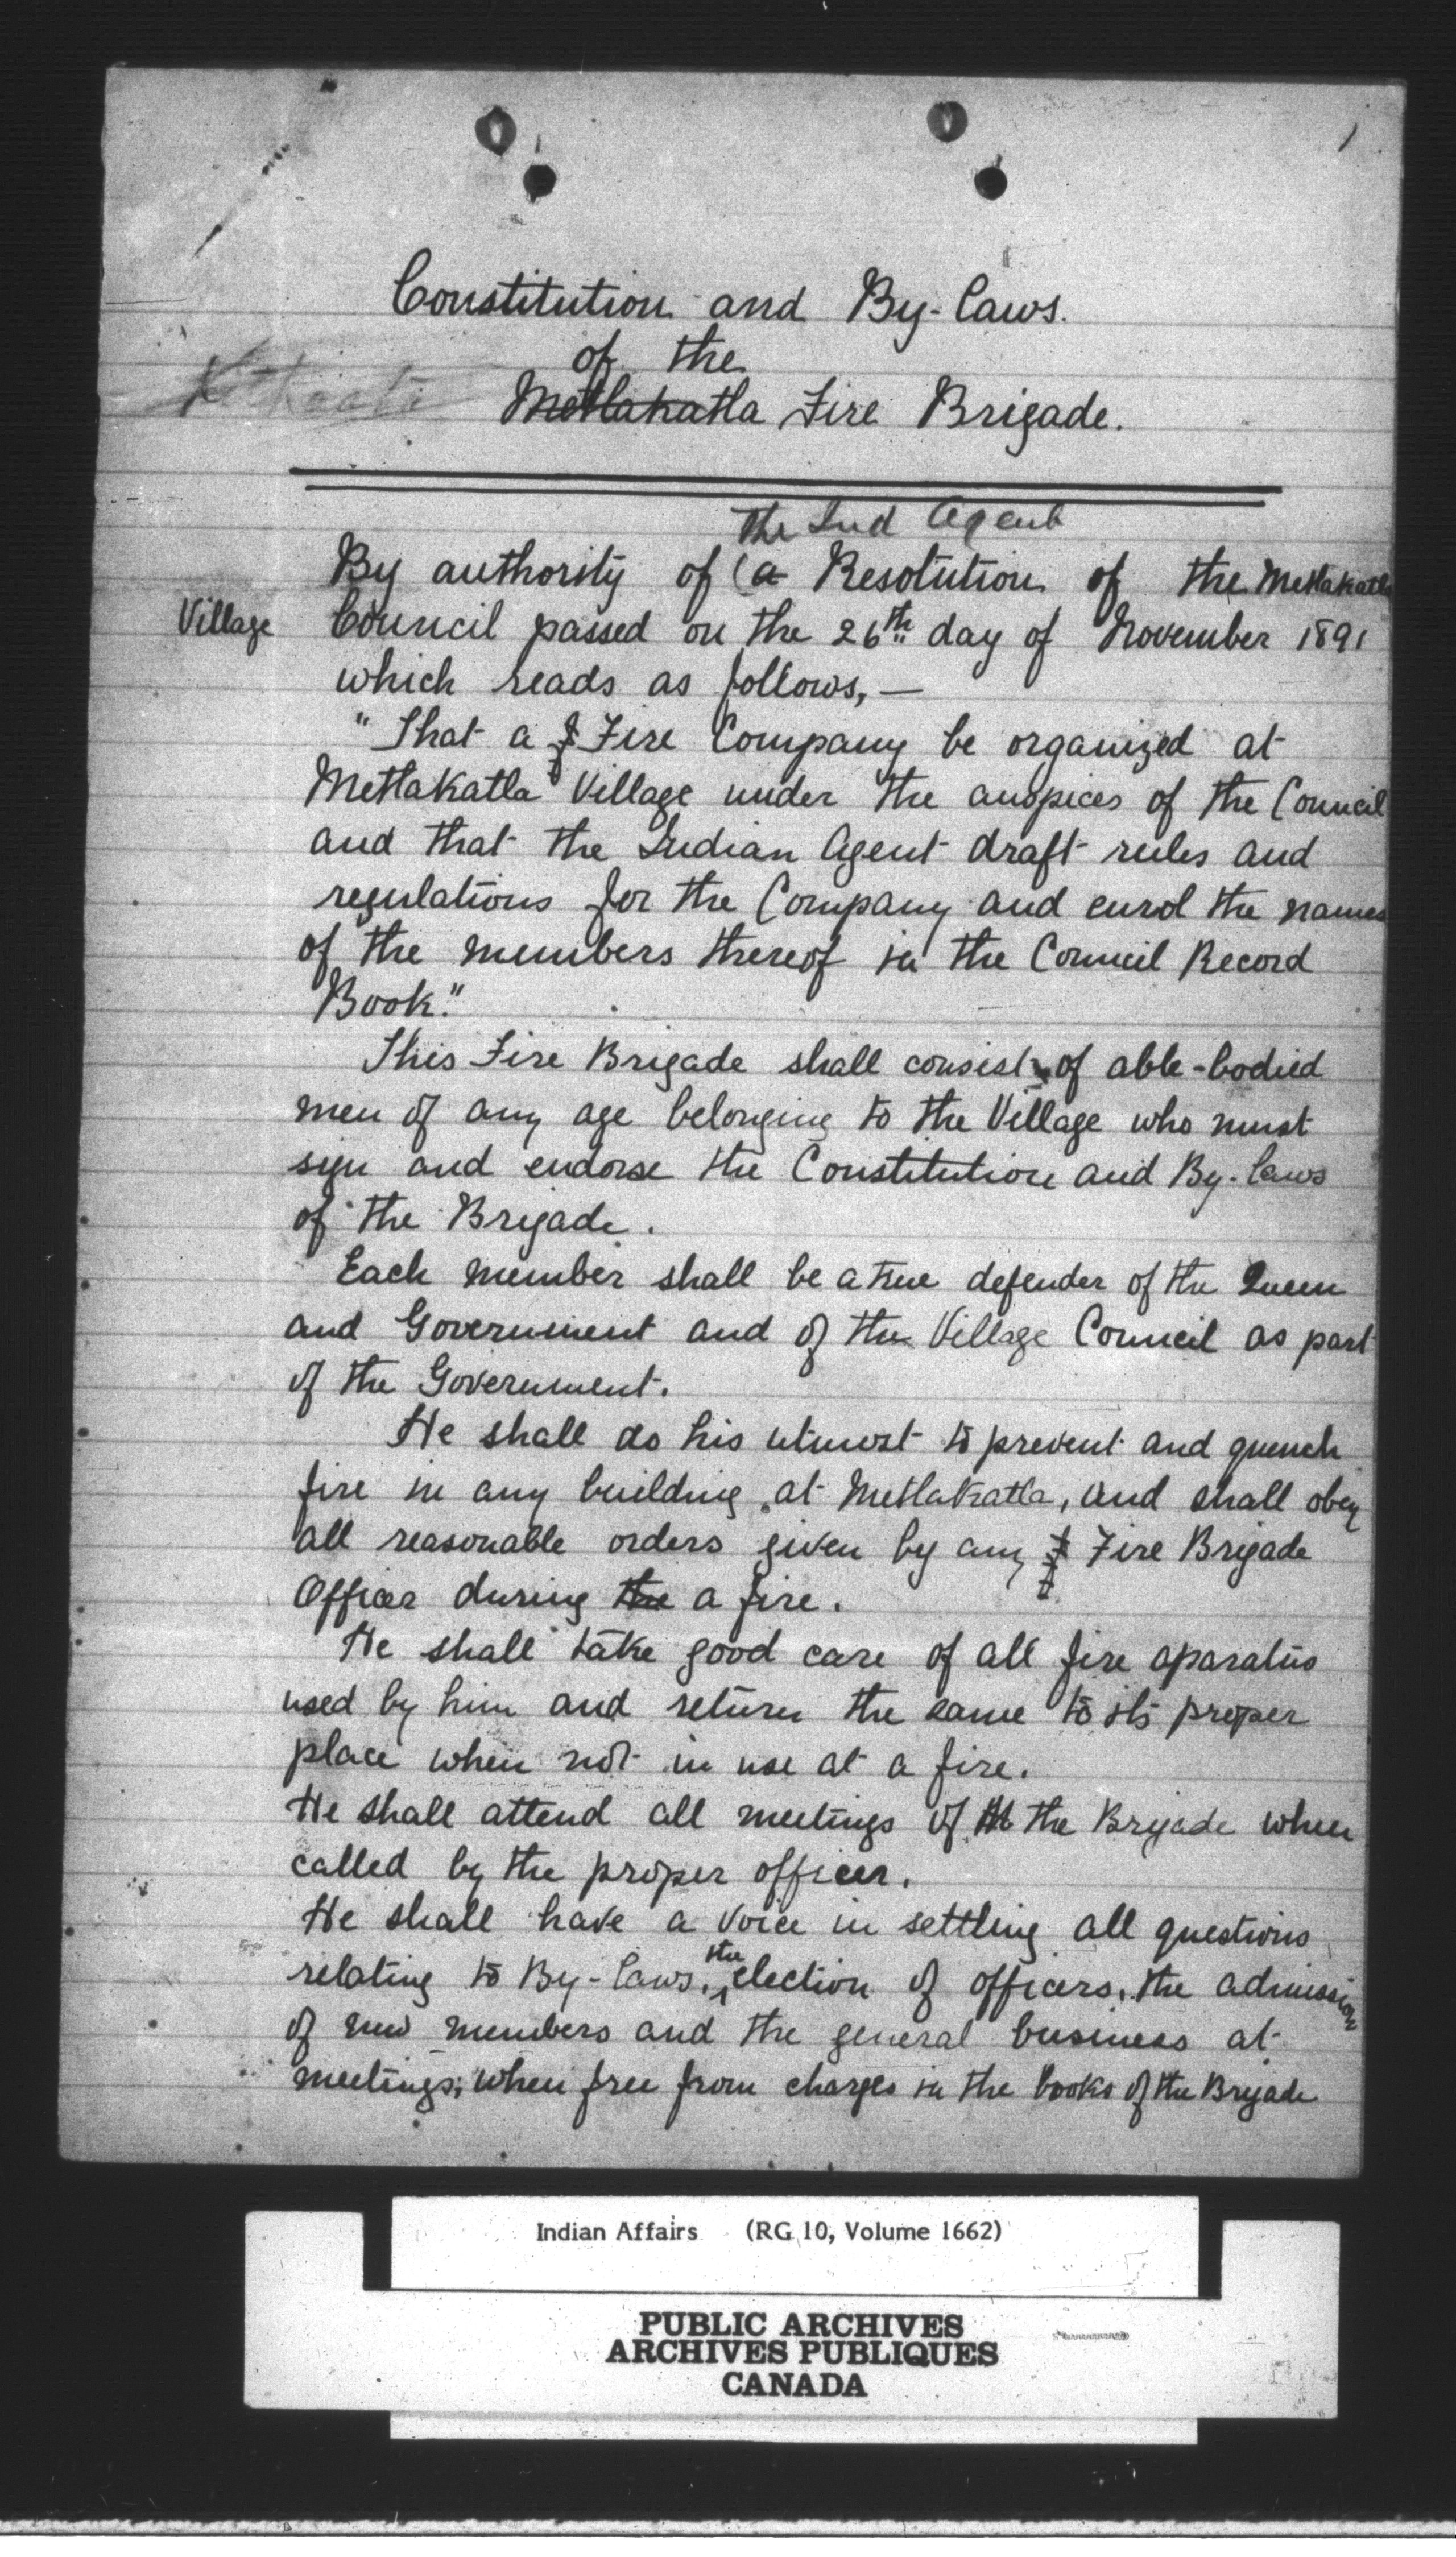 1
Constitution and By-Laws.
of the
Metlakatla Fire Brigade.
The Ind Agent
By authority of (a Resolution of the Metlakatla
Village Council passed on the 26th day of November 1891
which reads as follows, —
"That a f Fire Company be organized at
Metlakatla Village under the auspices of the Council
and that the Indian Agent draft rules and
regulations for the Company and enrol the names
of the members thereof in the Council Record
Book."
This Fire Brigade shall consist of able-bodied
men of any age belonging to the Village who must
sign and endorse the Constitution and By-Laws
of the Brigade.
Each member shall be a true defender of the Queen
and Government and of the Village Council as part
of the Government.
He shall do his utmost to prevent and quench
fire in any building at Metlakatla, and shall obey
all reasonable orders given by any f Fire Brigade
Officer during the a fire.
He shall take good care of all fire aparatus
used by him and return the same to its proper
place when not in use at a fire.
He shall attend all meetings of th the Brigade when
called by the proper officer.
He shall have a voice in settling all questions
relating to By-Laws, the election of officers, the admission
of new members and the general business at
meetings; when free from charges in the books of the Brigade
Indian Affairs (RG 10, Volume 1662)
PUBLIC ARCHIVES
ARCHIVES PUBLIQUES
CANADA